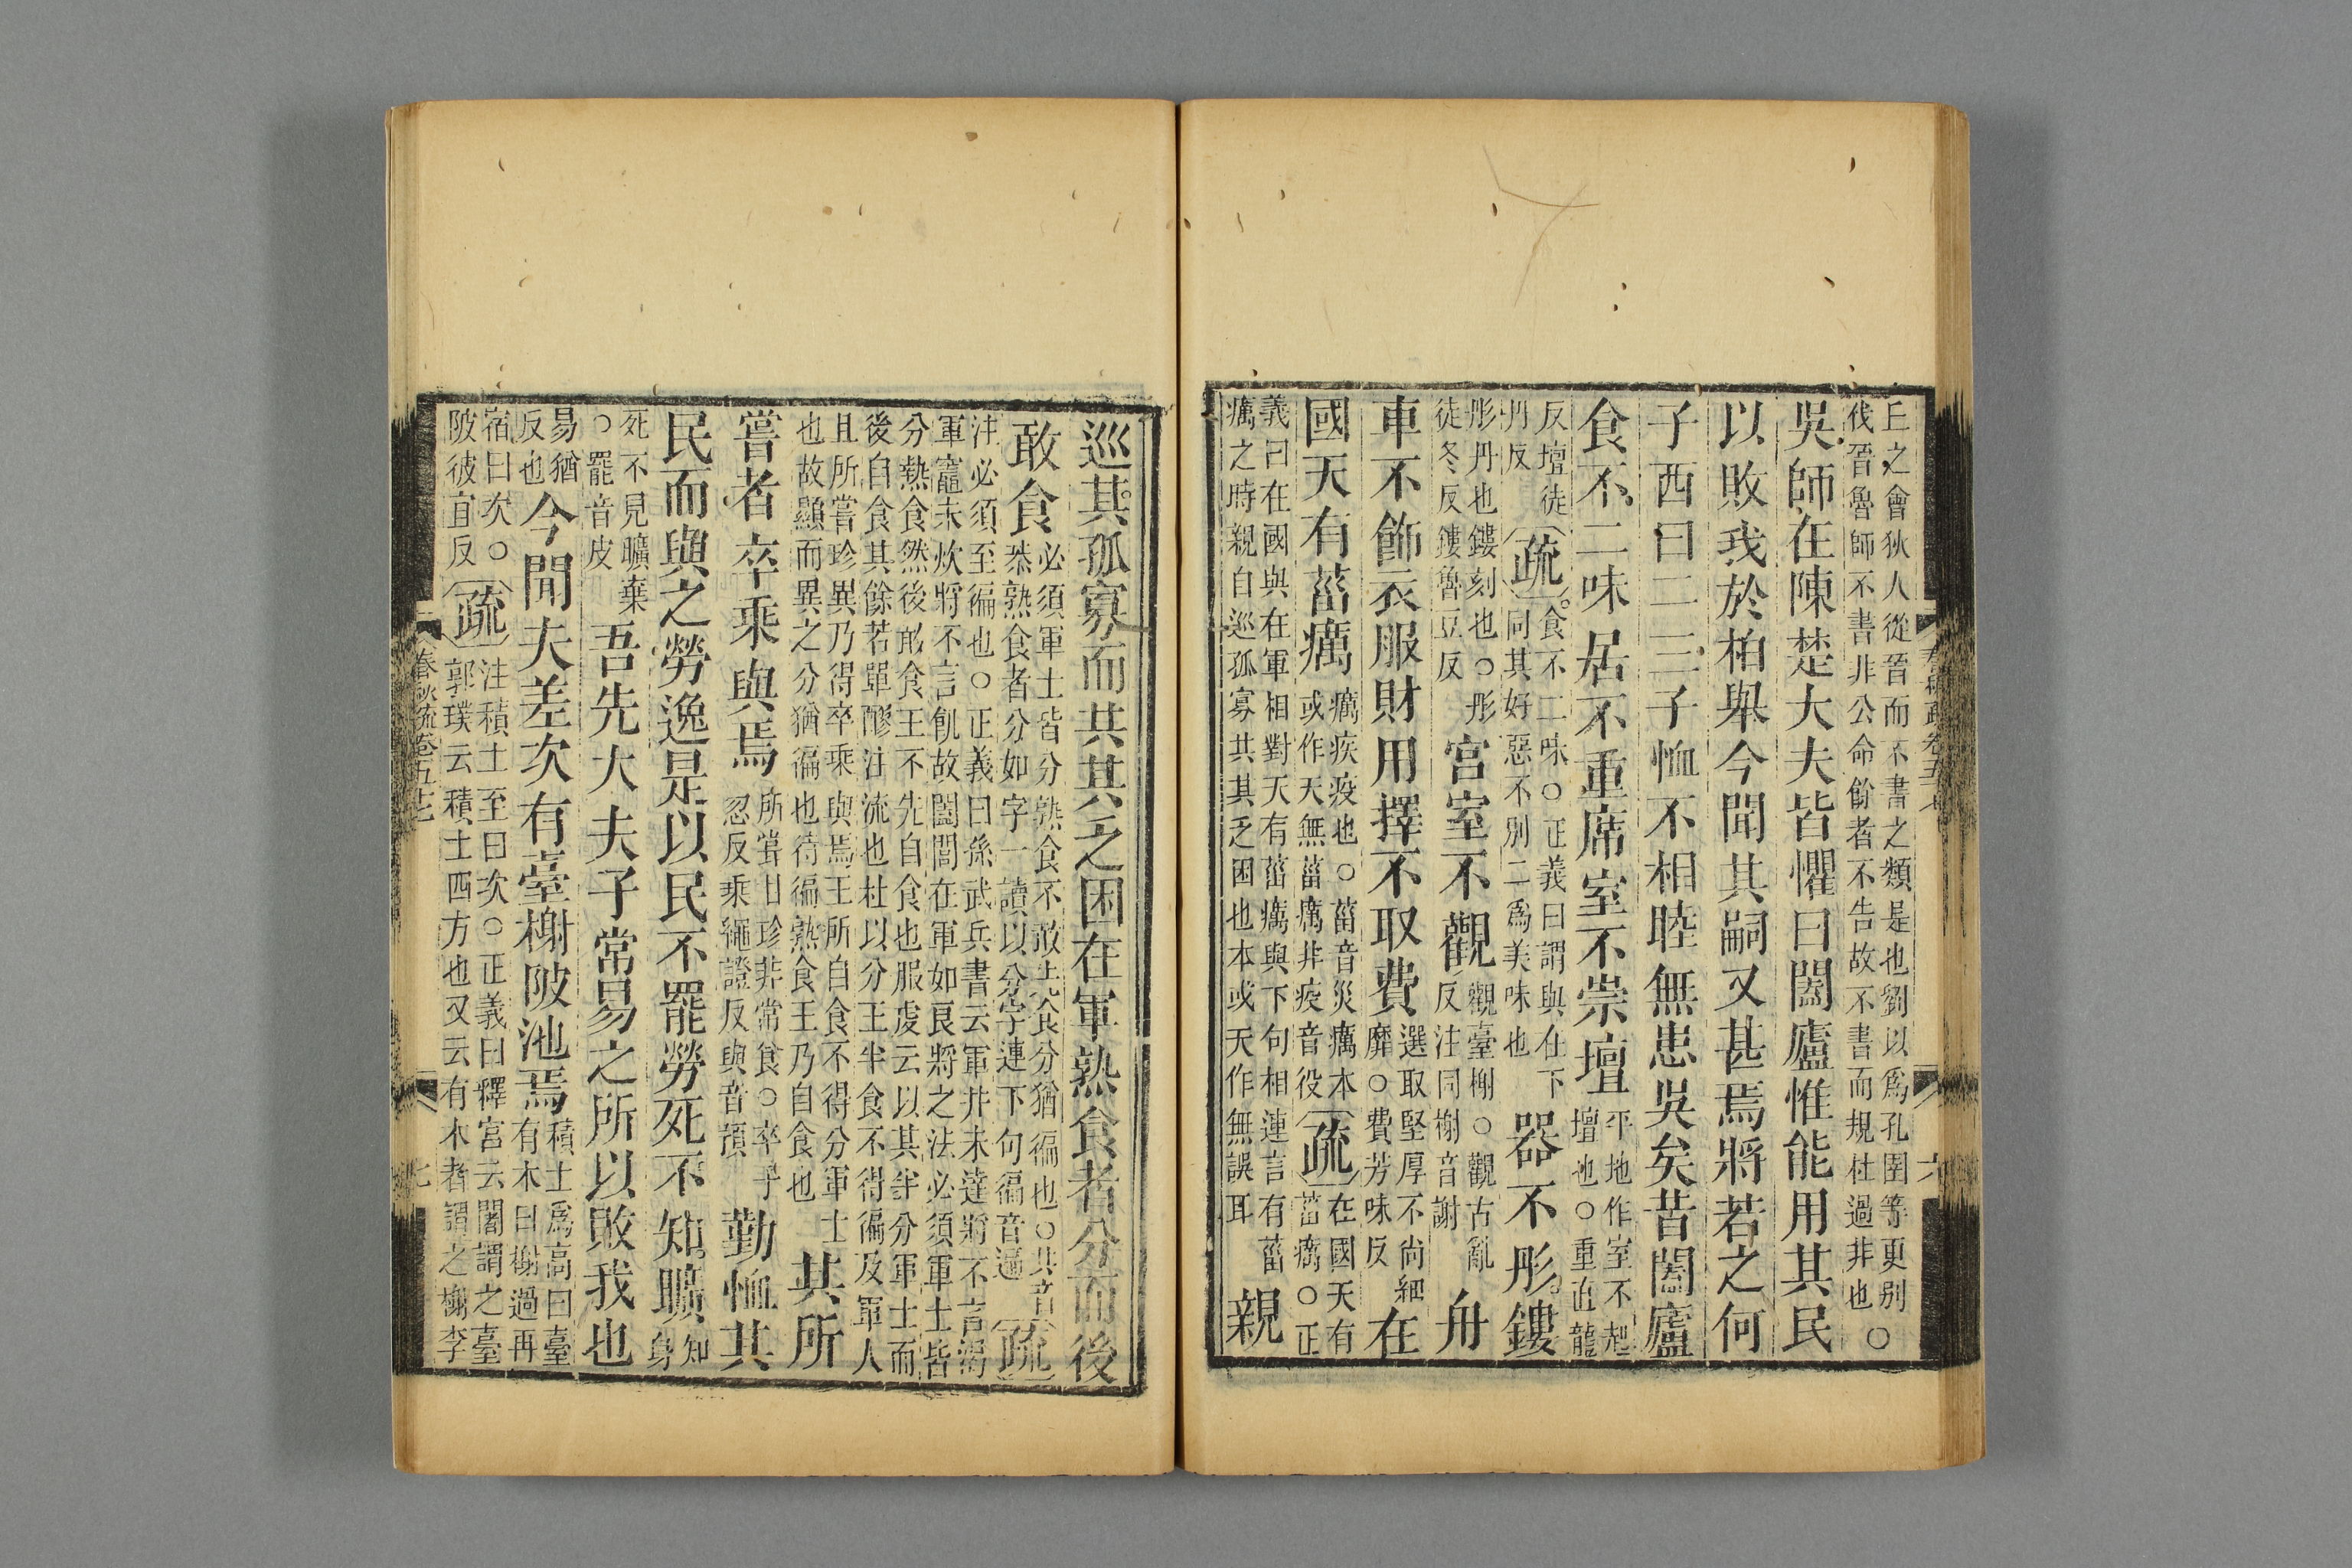 丘之會狄人從晉而不書之類是也劉以爲孔圉等更別
伐晉魯師不書非公命餘者不告故不書而規杜過非也〇
吳師在陳楚大夫皆懼曰闔廬惟能用其民
以敗我於柏舉今聞其嗣又甚焉將若之何
子西曰二三子恤不相睦無患吳矣昔闔廬
食不二味居不重席室不崇壇平地作室不起壇也〇重直龍
反壇徒丹反疏食不二味〇正義曰謂與在下同其好惡不別二爲美味也器不彤鏤
彤丹也鏤刻也〇彤徒冬反鏤魯豆反宮室不觀觀臺榭〇觀古亂反注同榭音謝舟
車不飾衣服財用擇不取費選取堅厚不尚細靡〇費芳味反在
國天有菑癘癘疾疫也〇菑音災癘本或作天無菑癘非疫音役疏在國天有菑癘〇正
義曰在國與在軍相對天有菑癘與下句相連言有菑癘之時親自巡孤寡共其乏困也本或天作無誤耳親
巡其孤寡而共其乏困在軍熟食者分而後
敢食必須軍士皆分熟食不敢先食分猶徧也〇共音恭熟食者分如字一讀以分字連下句徧音遍疏
注必須至徧也〇正義曰孫武兵書云軍井未達將不言渴
軍竈未炊將不言飢故闔閭在軍如良將之法必須軍士皆
分熱食然後敢食王不先自食也服虔云以其半分軍士而
後自食其餘若單醪注流也杜以分王半食不得徧及軍人
且所嘗珍異乃得卒乘與焉王所自食不得分軍士也故顯而異之分猶徧也待徧熟食王乃自食也其所
嘗者卒乘與焉所嘗甘珍非常食〇卒子忽反乘繩證反與音預勤恤其
民而與之勞逸是以民不罷勞死不知曠知身
死不見曠棄〇罷音皮吾先大夫子常易之所以敗我也
易猶反也今聞夫差次有臺榭陂池焉積土爲高曰臺有木曰榭過再
宿曰次〇陂彼宜反疏注積土至曰次〇正義曰釋宮云闍謂之臺郭璞云積土四方也又云有木者謂之榭李
春秋疏卷五十七
七